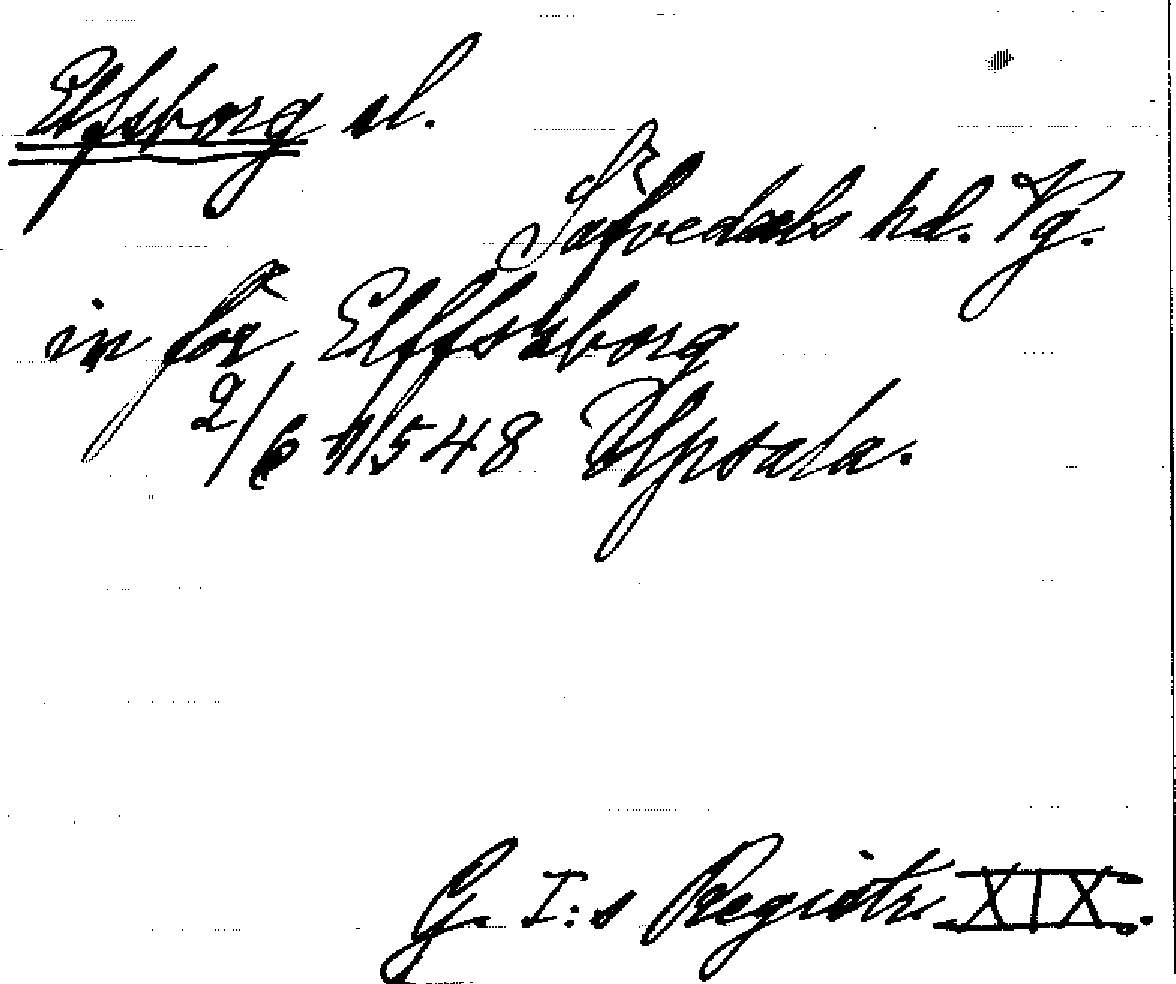 Elfsborg sl.
Säfvedals hd. Vg.
in för Elffsborg
2/6 1548 Upsala.
G. I:s Registr. XIX.